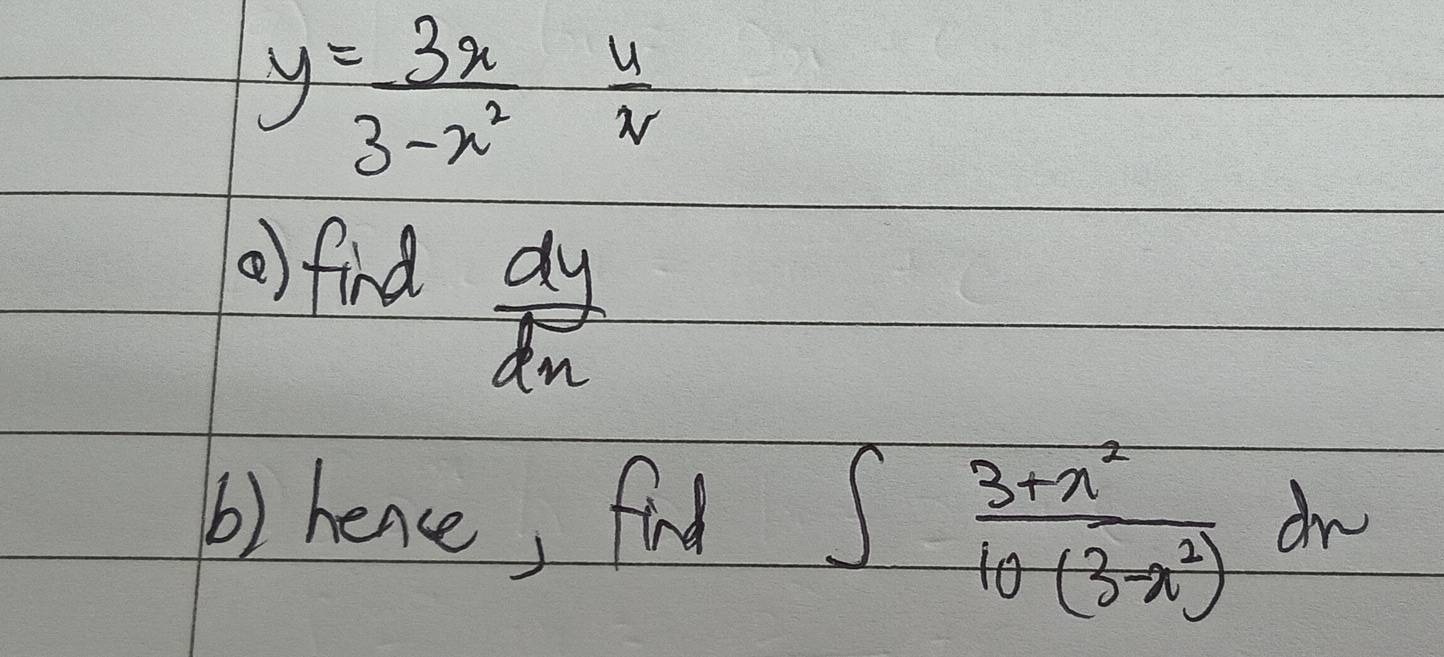 y = 3x / 3 - x² u / v
a) find dy / dx
b) hence, find ∫ 3 + x² / 10 (3 - x²) dx